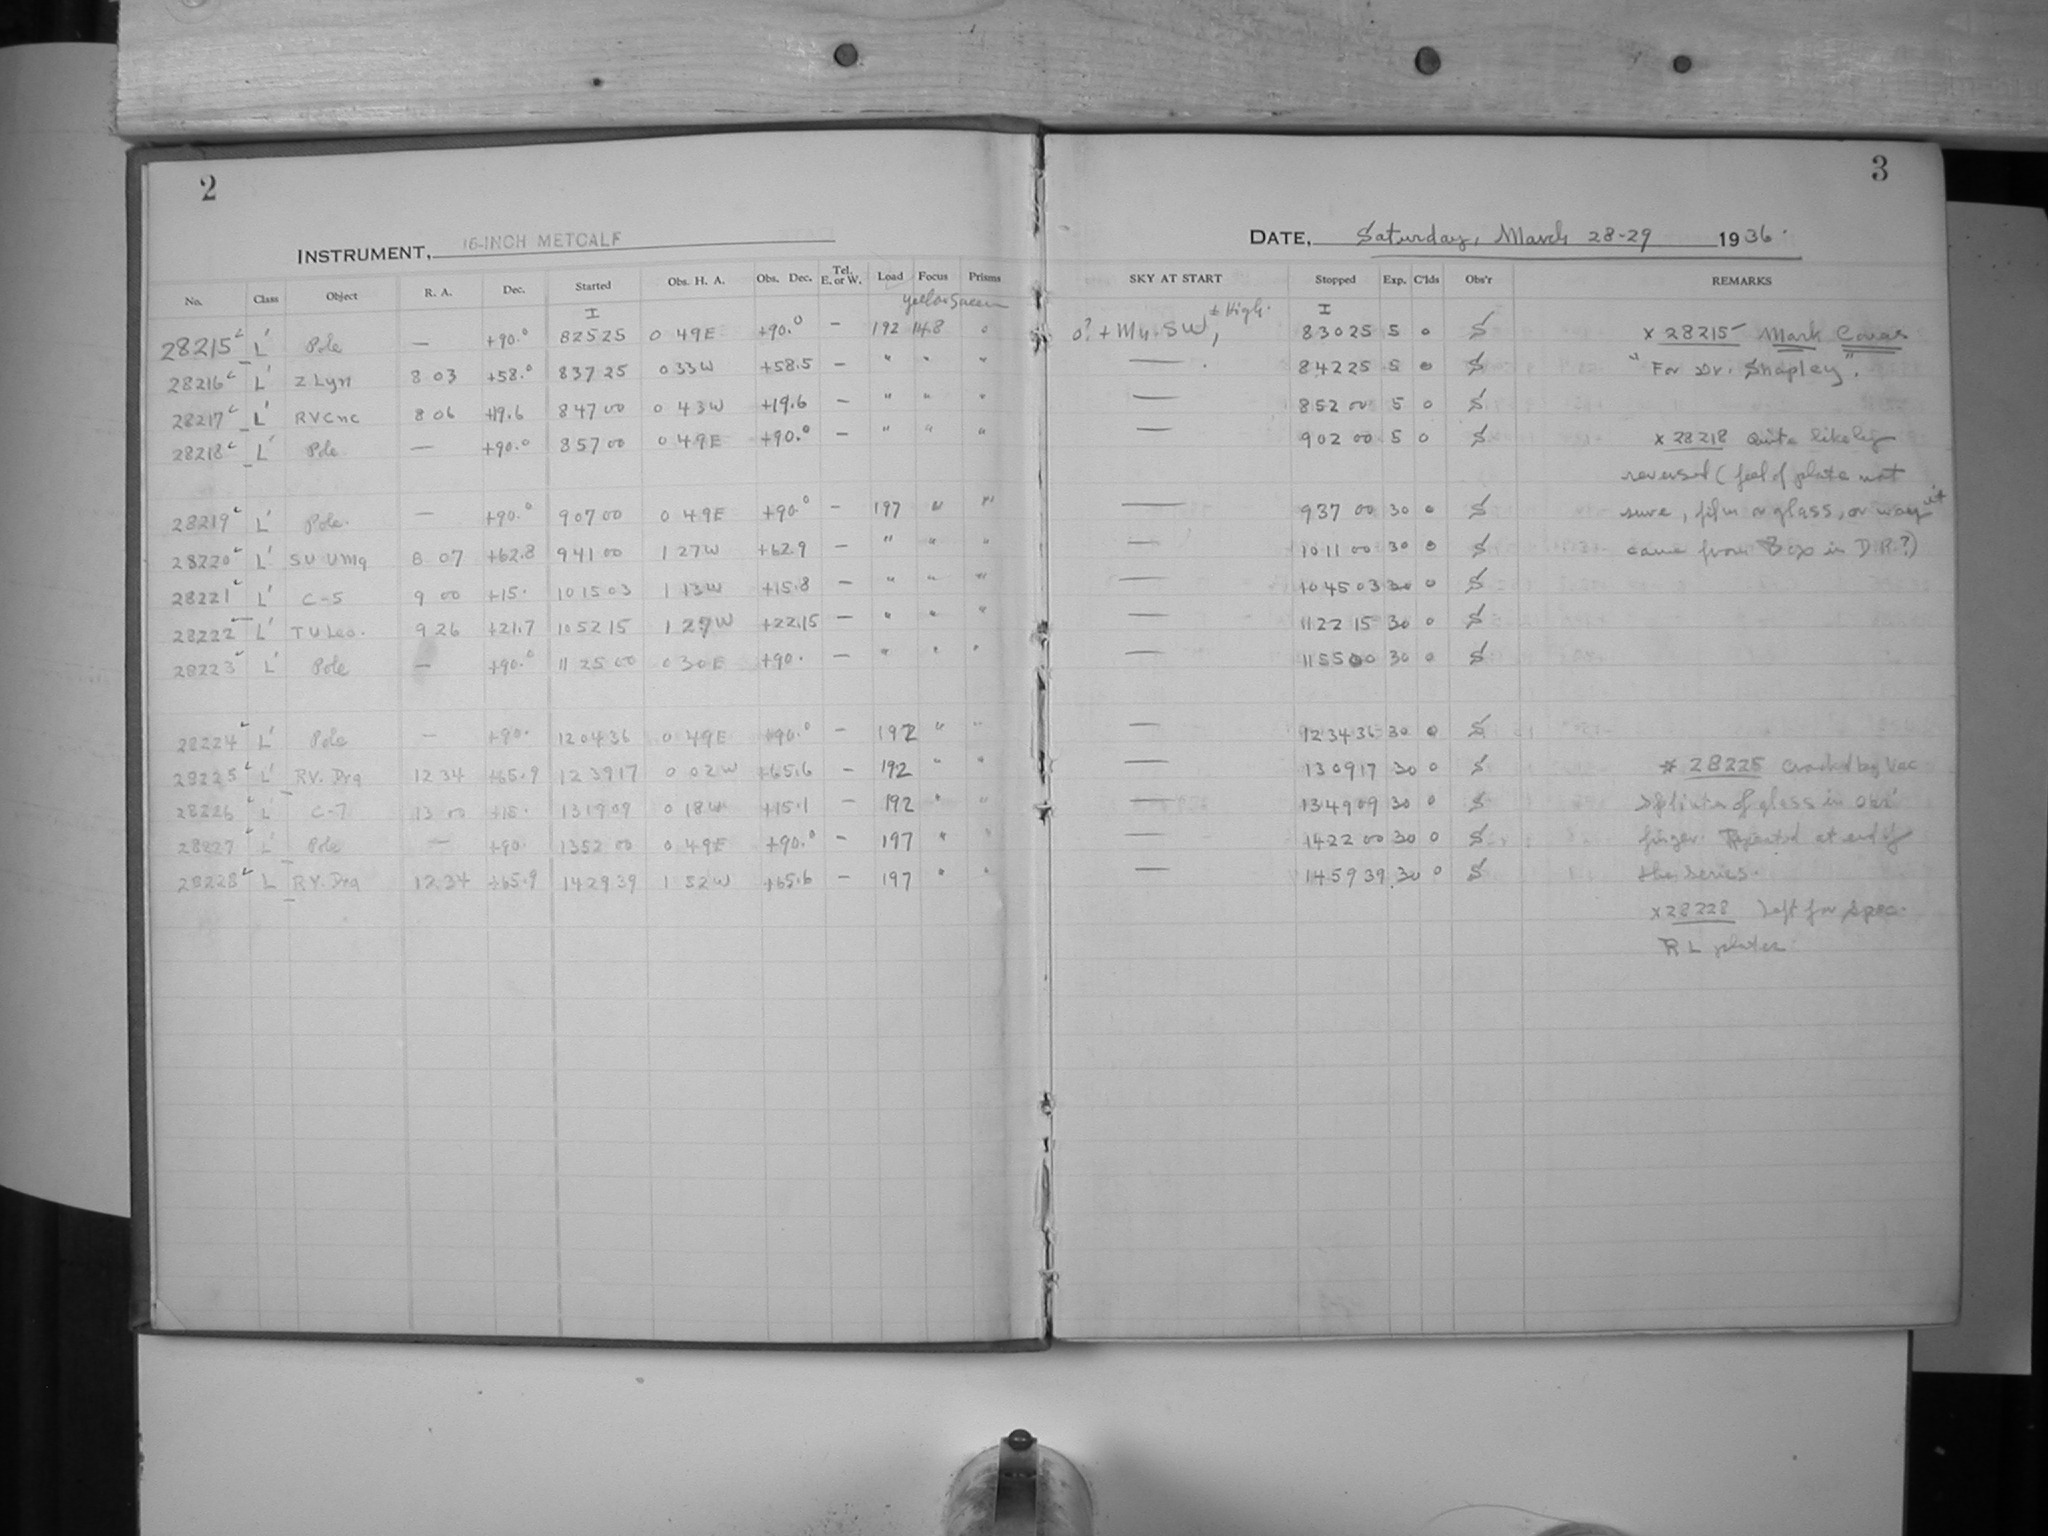 2
INSTRUMENT, 16-INCH METCALF
No. Class Object R. A. Dec. Started Obs. H. A. Obs. Dec. Tel. E. or W. Load Focus Prisms
I
28215 L' Pole — +90.° 82525 0 49E +90.° — 192 14.8 0
28216 L' Z Lyn 8 03 +58.° 83725 0 33W +58.5 — " " "
28217 L' RV Cnc 8 06 +19.6 84700 0 43W +19.6 — " " "
28218 L' Pole — +90.° 85700 0 49E +90.° — " " "
28219 L' Pole — +90.° 90700 0 49E +90.° — 197 " "
28220 L' SU UMa 8 07 +62.8 94100 1 27W +62.9 — " " "
28221 L' C-5 9 00 +15. 101503 1 13W +15.8 — " " "
28222 L' TU Leo. 9 26 +21.7 105215 1 27W +22.15 — " " "
28223 L' Pole — +90.° 112500 0 30E +90. — " " "
28224 L' Pole — +90. 120436 0 49E +90.° — 192 " "
28225 L' RV. Dra 12 34 +65.9 123917 0 02W +65.6 — 192 " "
28226 L' C-7 13 00 +15. 131909 0 18W +15.1 — 192 " "
28227 L' Pole — +90. 135200 0 49E +90.° — 197 " "
28228 L RV. Dra 12 34 +65.9 142939 1 52W +65.6 — 197 " "
3
DATE, Saturday, March 28-29 1936.
SKY AT START Stopped Exp. C'lds Obs'r REMARKS
± High. I
0? + My. SW, 83025 5 0 S x 28215 Mark
— 84225 5 0 S "For Dr. Shapley."
— 85200 5 0 S
— 90200 5 0 S x 28218 Quite likely
reversed (feel of plate not
— 93700 30 0 S sure, film or glass, or way it
— 101100 30 0 S came from Box in D.R.?)
— 104503 30 0 S
— 112215 30 0 S
— 115500 30 0 S
— 123436 30 0 S
— 130917 30 0 S * 28225 Cracked by
— 134909 30 0 S splinter of glass in obs'
— 142200 30 0 S finger. Repeated at end of
— 145939 30 0 S the series.
x 28228 left for spec.
R L plates